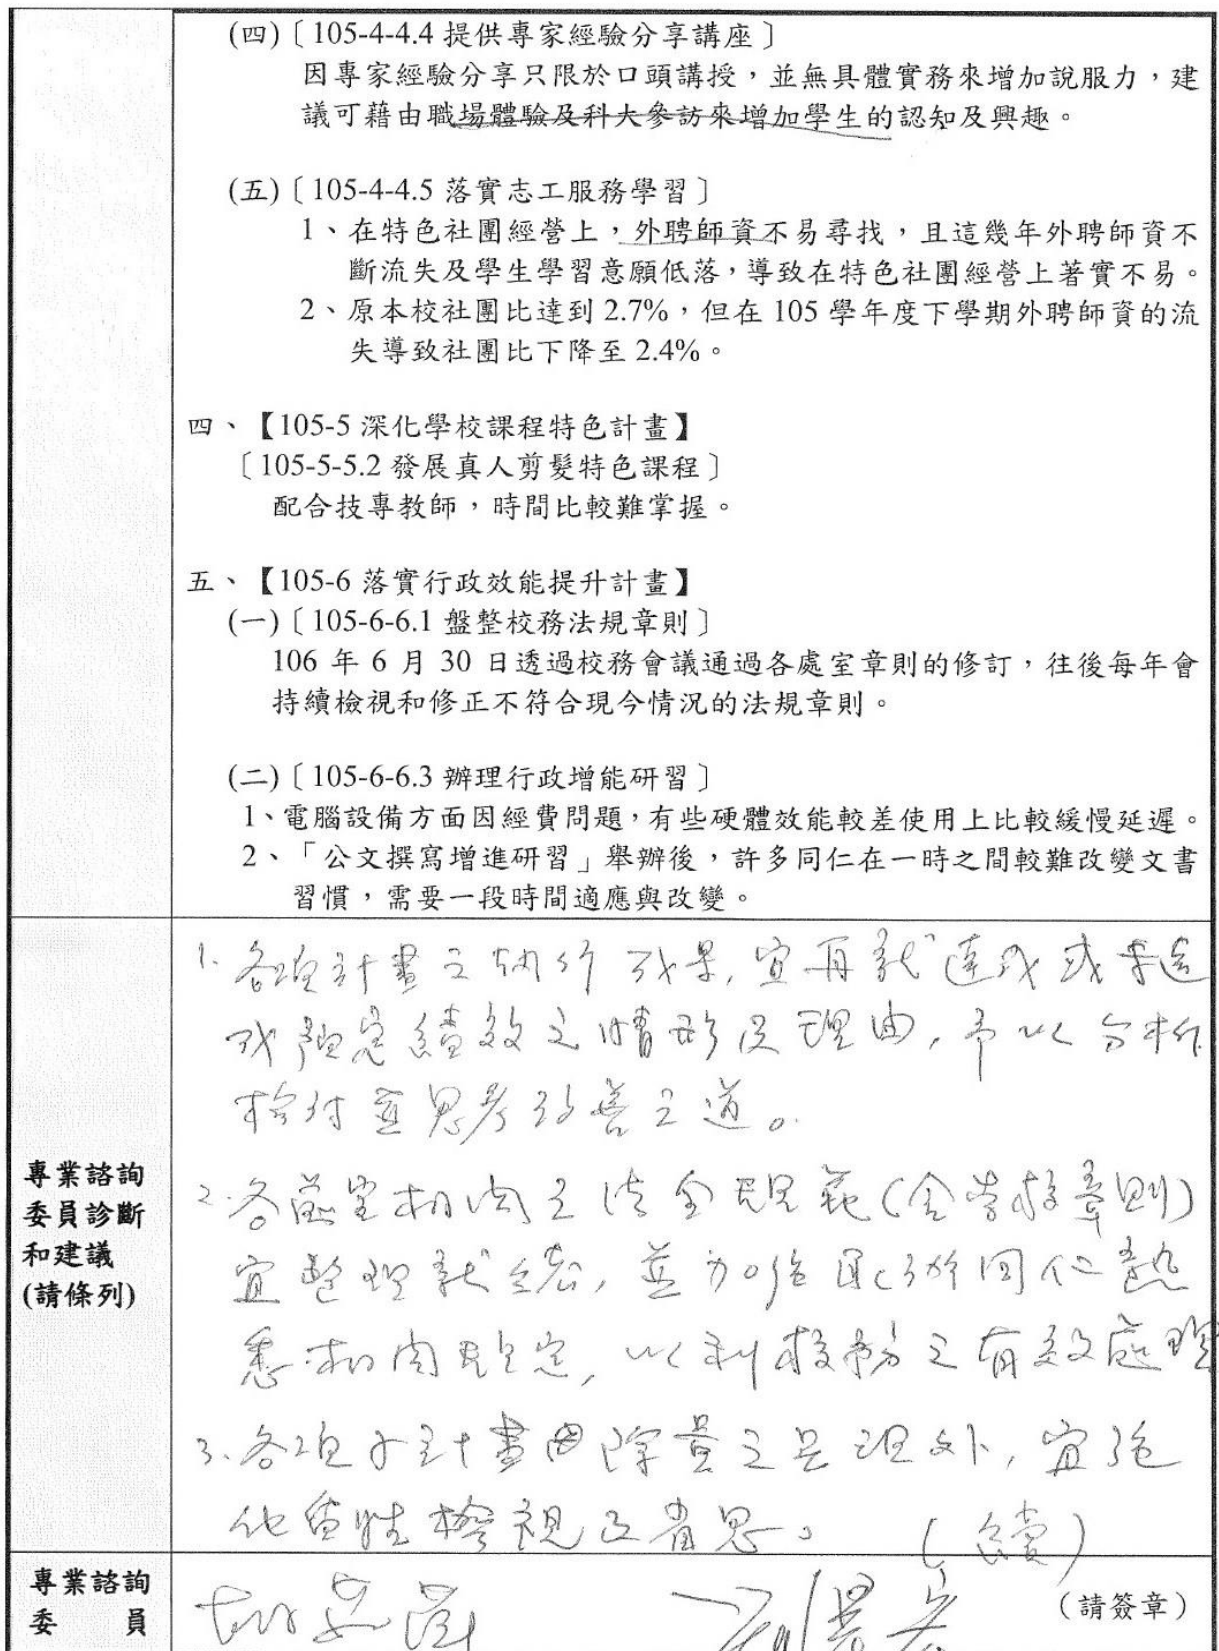 (四)〔105-4-4.4 提供專家經驗分享講座〕
因專家經驗分享只限於口頭講授，並無具體實務來增加說服力，建
議可藉由職場體驗及科大參訪來增加學生的認知及興趣。
(五)〔105-4-4.5 落實志工服務學習〕
1、在特色社團經營上，外聘師資不易尋找，且這幾年外聘師資不
斷流失及學生學習意願低落，導致在特色社團經營上著實不易。
2、原本校社團比達到 2.7%，但在 105 學年度下學期外聘師資的流
失導致社團比下降至 2.4%。
四、【105-5 深化學校課程特色計畫】
〔105-5-5.2 發展真人剪髮特色課程〕
配合技專教師，時間比較難掌握。
五、【105-6 落實行政效能提升計畫】
(一)〔105-6-6.1 盤整校務法規章則〕
106 年 6 月 30 日透過校務會議通過各處室章則的修訂，往後每年會
持續檢視和修正不符合現今情況的法規章則。
(二)〔105-6-6.3 辦理行政增能研習〕
1、電腦設備方面因經費問題，有些硬體效能較差使用上比較緩慢延遲。
2、「公文撰寫增進研習」舉辦後，許多同仁在一時之間較難改變文書
習慣，需要一段時間適應與改變。
專業諮詢
委員診斷
和建議
(請條列)
1. 各項計畫之執行成果，宜再就達成或未達
成預定績效之情形及理由，予以分析
檢討並思考改善之道。
2. 各處室相關之法令規範(含學校章則)
宜整理就緒，並加強同仁熟
悉相關規定，以利校務之有效處理
3. 各項子計畫除量之呈現外，宜強
化質性檢視及省思。 (續)
專業諮詢
委 員
(請簽章)